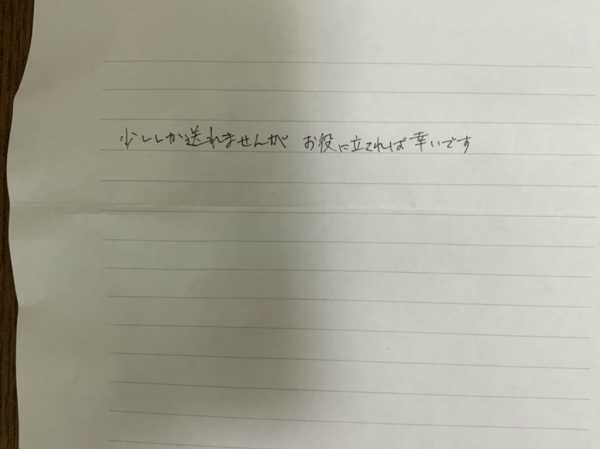 少ししか送れませんが お役に立てれば幸いです